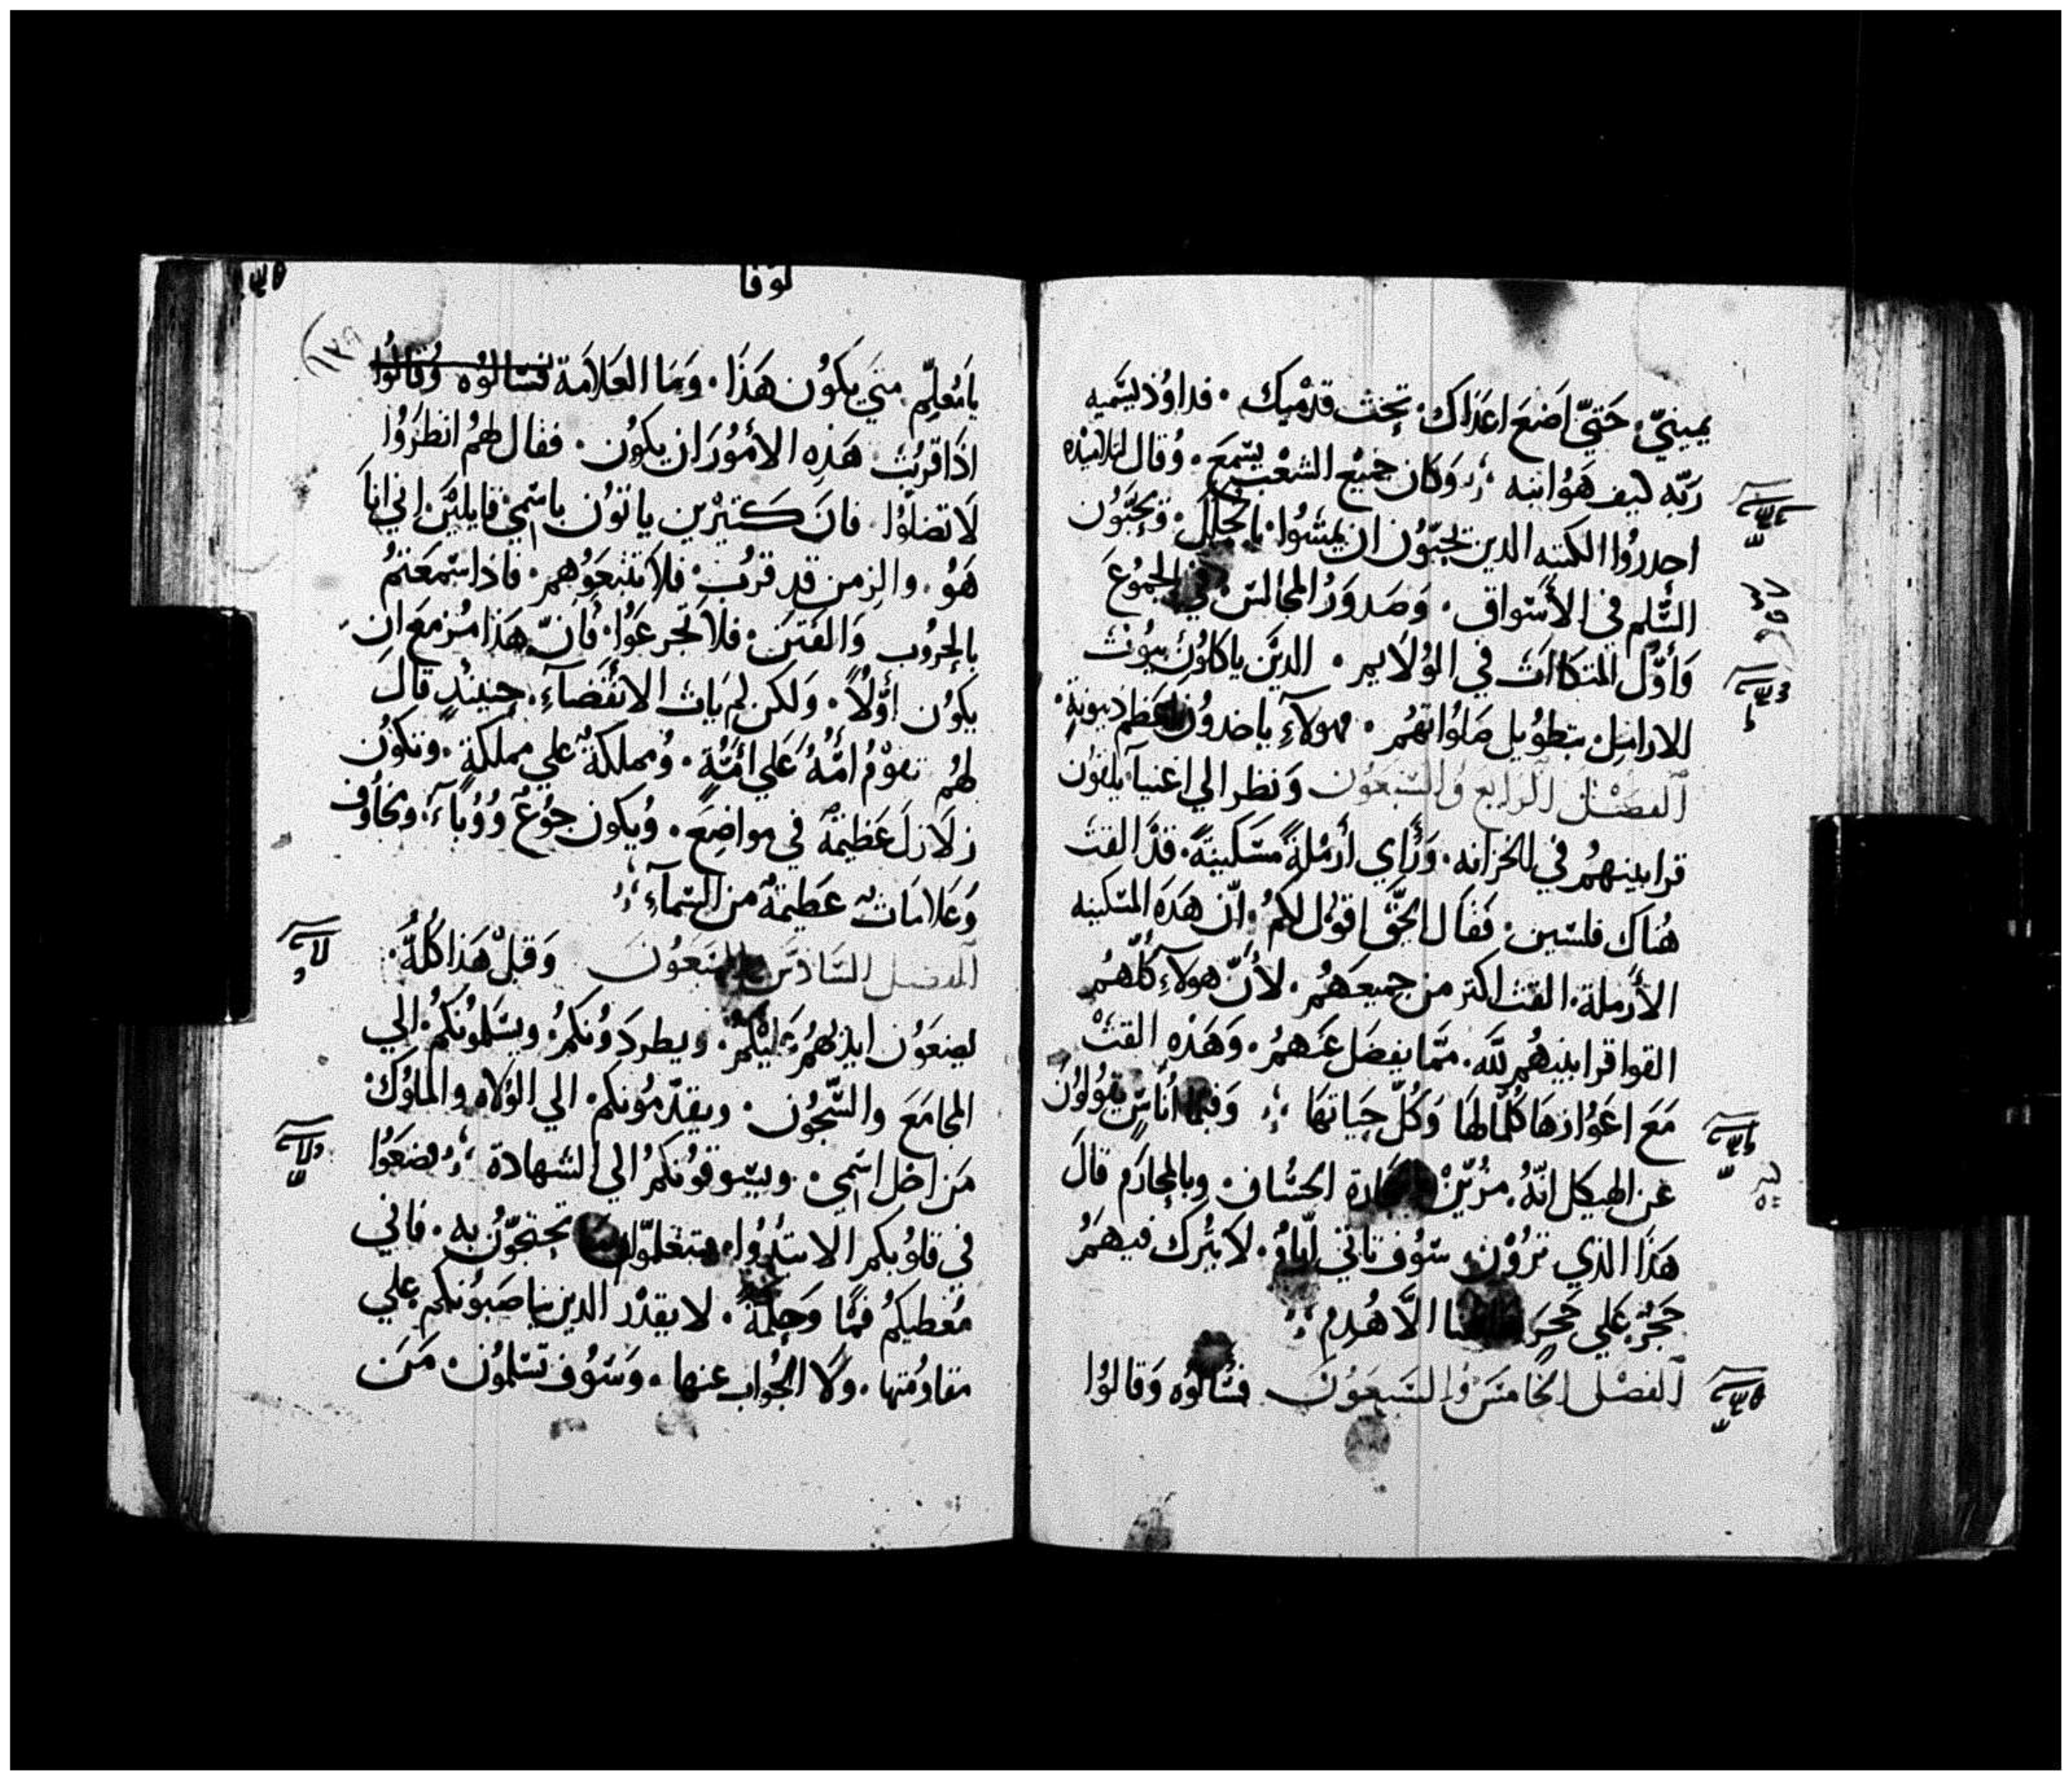 يمينيّ. حَتيّ اَضعَ اعدَاك. تحِت قدمْيك. فداوُد يسَّميه
رَبّه كيف هَوُ ابنه وَكانَ جميْع الشعْب يسَمع. وُقال لتلاميْده
احدروُا الكتبه الدين يحبّوُن ان يمشوُا بالحلِل. وَيحَبّوُن
السَّلم في الأسَواق. وَصَدوَرُ المجالسَ في الجموُعَ
وَأوّل المتكاات في الوُلايم. الديَن ياكلوُن بيوُت
للارامل. بتطوُيل صَلوُاتهُم. هولآءِ ياخدوُن اعظم دينونةٍ.
اَلفصَْل اَلرَابع وَالسَّبعَوُن وَنظر الي اغنيآ يلقون
قرابينهمُ في الخزانه. وَرأي أرمْلةً مسَكينةً. قدْ القت
هُناك فلسَين. فقَال الحَقّ اقوُل لكُم. انّ هَدَه المسَكينه
الأرَملة. القت اكتر من جميَعهُم. لأنّ هولاءِ كلّهُم
القوا قرابينهُم لله. ممَّا يفضَل عَنهمُ. وَهَدْه القت
مَعَ اعَوُازهَا كلّمَا لهَا وَكلّ حَياتهَا وَفيما أناسٌ يقوُلوُن
عن الهيكل انّهُ. مزُيّنْ بالحجارة الحسَان. وبالمحارَم قالَ
هَذا الذي ترَوْن. سَوُف تاتي ايّامُ. لا يتُرك فيهَمُ
حَجُر عَلي حَجرَ هاهُنا الاَّ هُدِم
اَلفصْل الخاَمسَ وُالسَّبعَوُنَ فسَالوُه وَقالوُا
لوقا
١٢٩
يامَعُلِّم متيَ يكوُن هَذا. وَمَا العَلامَة فسَالوُه وُقالوُا
ادَا قربُت هَذِه الأموُرَ ان يكوُن. فقال لهمُ انظروُا
لا تضلوّا. فانَ كتيرْين ياتوُن باسمْي قايلينَ اني انا
هَوُ. والزمن قد قربُ. فلا تتبعَوُهم. فاذا سَمعَتمُ
بالحُروُب وَالفتنَ. فلا تجزعَوُا. فأنّ هَذا مُزمعَ ان
يكوُن أوّلاً. وَلكن لم يَات الانقضَآءِ. حِينيذٍ قالَ
لهُم تقوْمُ أمّةُ عَلي أمّةٍ. وُمملكةٌ علي مملكةٍ. وتكوُن
زلازلَ عَظيمةٌ في مواضعَ. وُيكون جوُعٌ وَوُباءَ. ومخاوُف
وَعَلامَاتٌ عَظيمةٌ من السَّمآءِ
اَلفصَل السَّادسَ وَالسَّبعَوُنَ وَقبلْ هَذا كُلّهُ.
يضعَوُن ايديَهُم عَليْكمُ. ويطردَوُنكمُ. ويسَلموُنكمُ. الي
المجامَعَ والسَّجوُن. ويقدّموُنكم. الي الوُلاه والملوُك.
مَن اجَل اسَمي. ويسَوقوُنكمُ الي الشهادة يضعَوُا
في قلوُبكم الا تبتدُوُا. وتتعَلّموُا بما تحتجّوُن به. فاني
مُعطيكمُ فمًا وَحِكمَةً. لا يقدْر الدين يناصَبوُنكم علي
مقاومُتها. وَلا الجوُاب عنها. وَسَوُف تسَلموُن. مَنَ